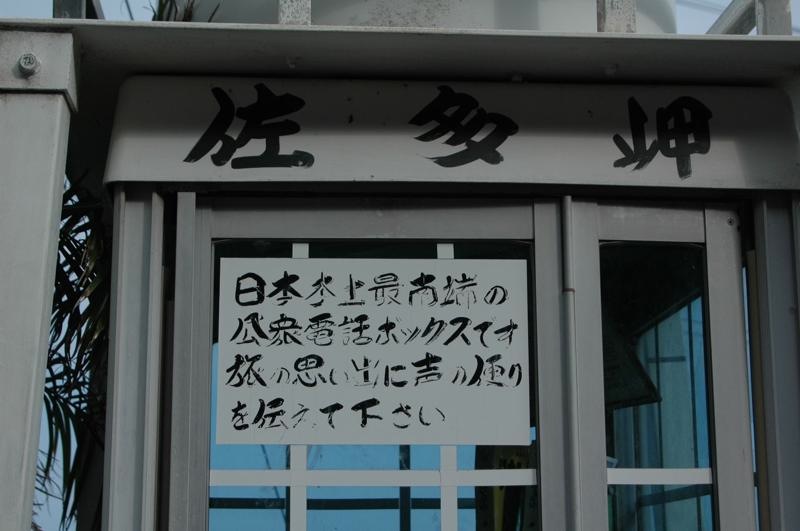 佐多岬
日本本土最南端の
公衆電話ボックスです
旅の思い出に声の便り
を伝えて下さい